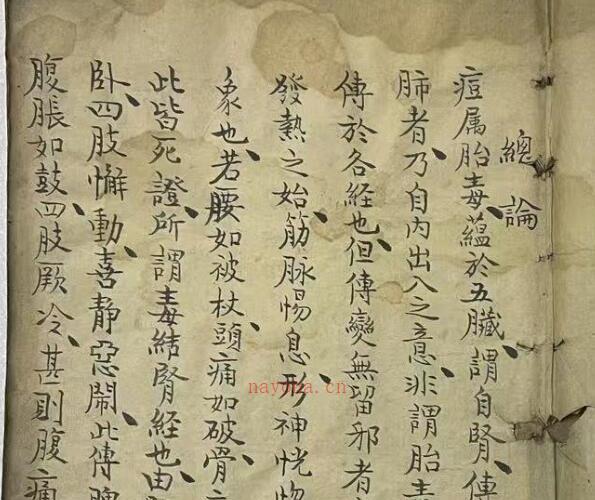 總論
痘属胎毒、蘊於五臟、謂自腎、傳
肺者、乃自内出入之意、非謂胎毒
傳於各经也、但傳變無留邪者
發熱之始、筋脉惕息、形神恍惚
象也、若腰如被杖、頭痛如破骨
此皆死證、所謂毒结腎经也、由
卧、四肢懈動、喜静惡鬧、此傳脾
腹脹如鼓、四肢厥冷、甚則腹痛
nayona.cn